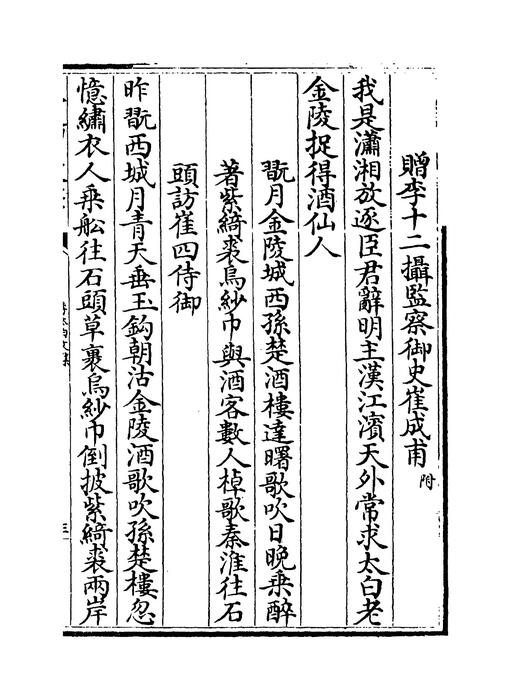 贈李十二攝監察御史崔成甫附
我是瀟湘放逐臣君辭明主漢江濱天外常求太白老
金陵捉得酒仙人
翫月金陵城西孫楚酒樓達曙歌吹日晚乗醉
著紫綺裘烏紗巾與酒客數人棹歌秦淮往石
頭訪崔四侍御
昨翫西城月青天垂玉鈎朝沽金陵酒歌吹孫楚樓忽
憶繡衣人乗舩往石頭草裹烏紗巾倒披紫綺裘兩岸